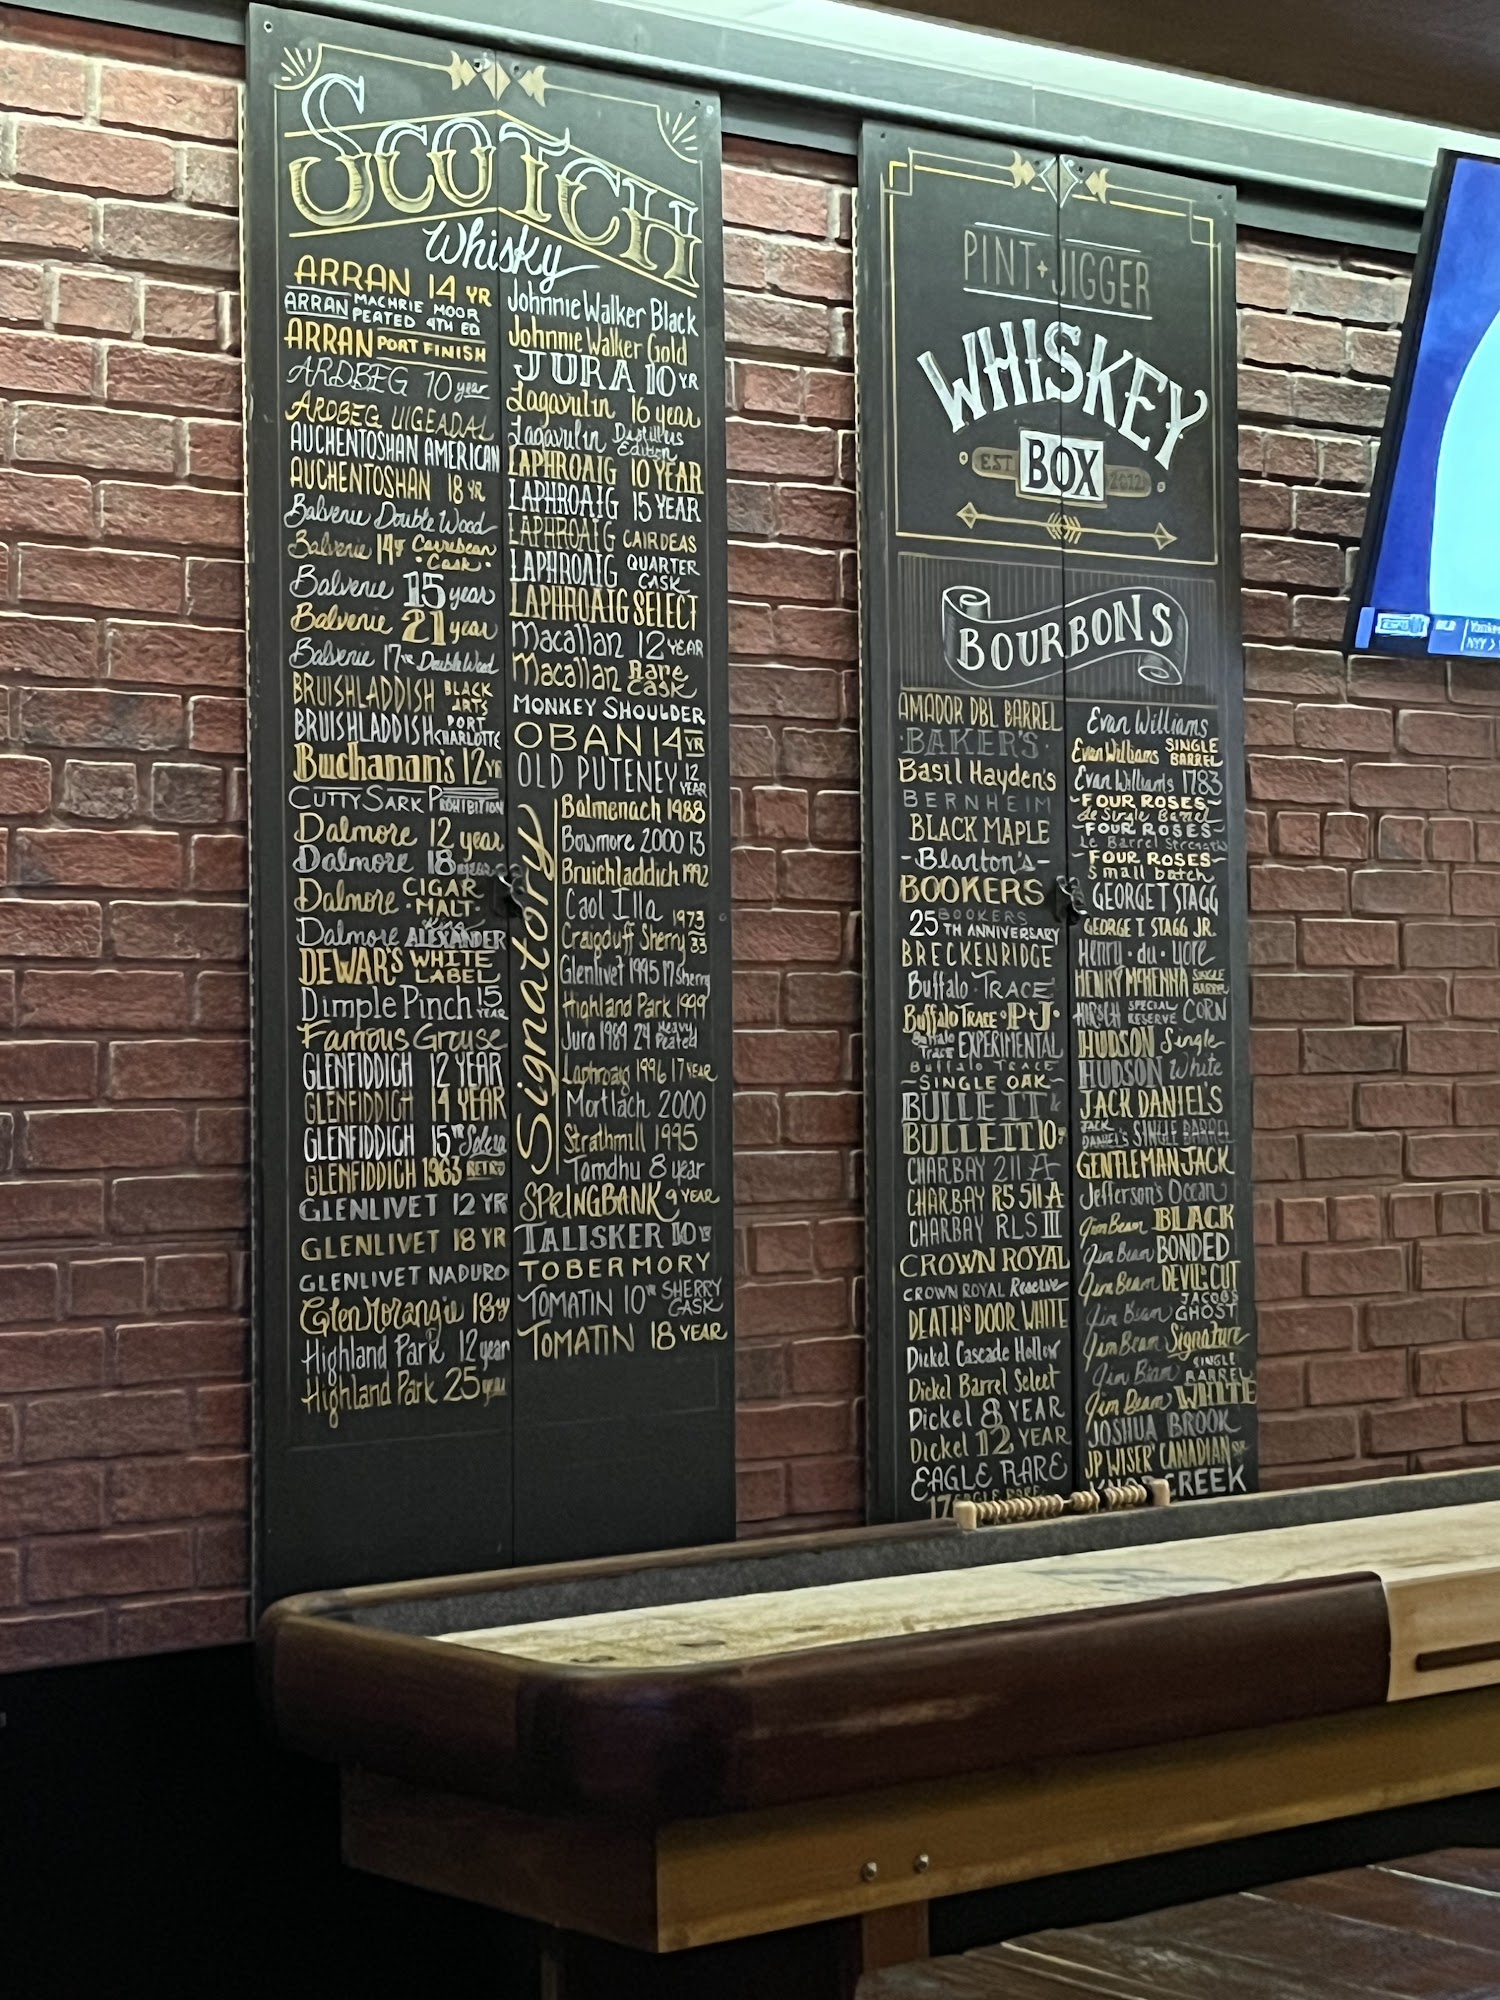 SCOTCH
Whisky
ARRAN 14 YR
ARRAN MACHRIE MOOR PEATED 4TH ED
ARRAN PORT FINISH
ARDBEG 10 year
ARDBEG UIGEADAL
AUCHENTOSHAN AMERICAN
AUCHENTOSHAN 18 YR
Balvenie Double Wood
Balvenie 14yr Carrebean Cask
Balvenie 15 year
Balvenie 21 year
Balvenie 17YR Double Wood
BRUISHLADDISH BLACK ARTS
BRUISHLADDISH PORT CHARLOTTE
Buchanan's 12 YR
CUTTY SARK PROHIBITION
Dalmore 12 year
Dalmore 18 year
Dalmore CIGAR MALT
Dalmore King ALEXANDER
DEWAR'S WHITE LABEL
Dimple Pinch 15 YEAR
Famous Grouse
GLENFIDDICH 12 YEAR
GLENFIDDIGH 14 YEAR
GLENFIDDICH 15YR Solera
GLENFIDDICH 1963 RETRO
GLENLIVET 12 YR
GLENLIVET 18 YR
GLENLIVET NADURO
GlenMorangie 18y
Highland Park 12 year
Highland Park 25 year
Johnnie Walker Black
Johnnie Walker Gold
JURA 10 YR
Lagavulin 16 year
Lagavulin Distillers Edition
LAPHROAIG 10 YEAR
LAPHROAIG 15 YEAR
LAPHROAIG CAIRDEAS
LAPHROAIG QUARTER CASK
LAPHROAIG SELECT
Macallan 12 YEAR
Macallan Rare Cask
MONKEY SHOULDER
OBAN 14 YR
OLD PUTENEY 12 YEAR
Signatory
Balmenach 1988
Bowmore 2000 13
Bruichladdich 1992
Caol Illa
Craigduff Sherry 1973 33
Glenlivet 1995 17 Sherry
Highland Park 1999
Jura 1989 24 Heavy Peated
Laphroaig 1996 17 YEAR
Mortlach 2000
Strathmill 1995
Tamdhu 8 year
SPRINGBANK 9 YEAR
TALISKER 10 YR
TOBERMORY
TOMATIN 10YR SHERRY CASK
TOMATIN 18 YEAR
PINT + JIGGER
WHISKEY
EST BOX 2012
BOURBONS
AMADOR DBL BARREL
BAKER'S
Basil Hayden's
BERNHEIM
BLACK MAPLE
-Blanton's-
BOOKERS
25TH BOOKERS ANNIVERSARY
BRECKENRIDGE
Buffalo TRACE
Buffalo TRACE P+J
Buffalo Trace EXPERIMENTAL
Buffalo TRACE
~SINGLE OAK~
BULLEIT
BULLEIT 10 yr
CHARBAY 211 A
CHARBAY R5 511 A
CHARBAY RLS III
CROWN ROYAL
CROWN ROYAL Reserve
DEATH'S DOOR WHITE
Dickel Cascade Hollow
Dickel Barrel Select
Dickel 8 YEAR
Dickel 12 YEAR
EAGLE RARE
17 EAGLE RARE
Evan Williams
Evan Williams SINGLE BARREL
Evan Williams 1783
~FOUR ROSES~
Le Single Barrel
~FOUR ROSES~
Le Barrel Strength
~FOUR ROSES~
Small batch
GEORGE T STAGG
GEORGE T. STAGG JR.
Henry·du·yore
HENRY MCKENNA SINGLE BARREL
HIRSCH SPECIAL RESERVE CORN
HUDSON Single
HUDSON White
JACK DANIEL'S
JACK DANIEL'S SINGLE BARREL
GENTLEMAN JACK
Jefferson's Ocean
Jim Beam BLACK
Jim Beam BONDED
Jim Beam DEVIL'S CUT
Jim Beam JACOBS GHOST
Jim Beam Signature
Jim Beam SINGLE BARREL
Jim Beam WHITE
JOSHUA BROOK
JP WISER' CANADIAN
KNOB CREEK